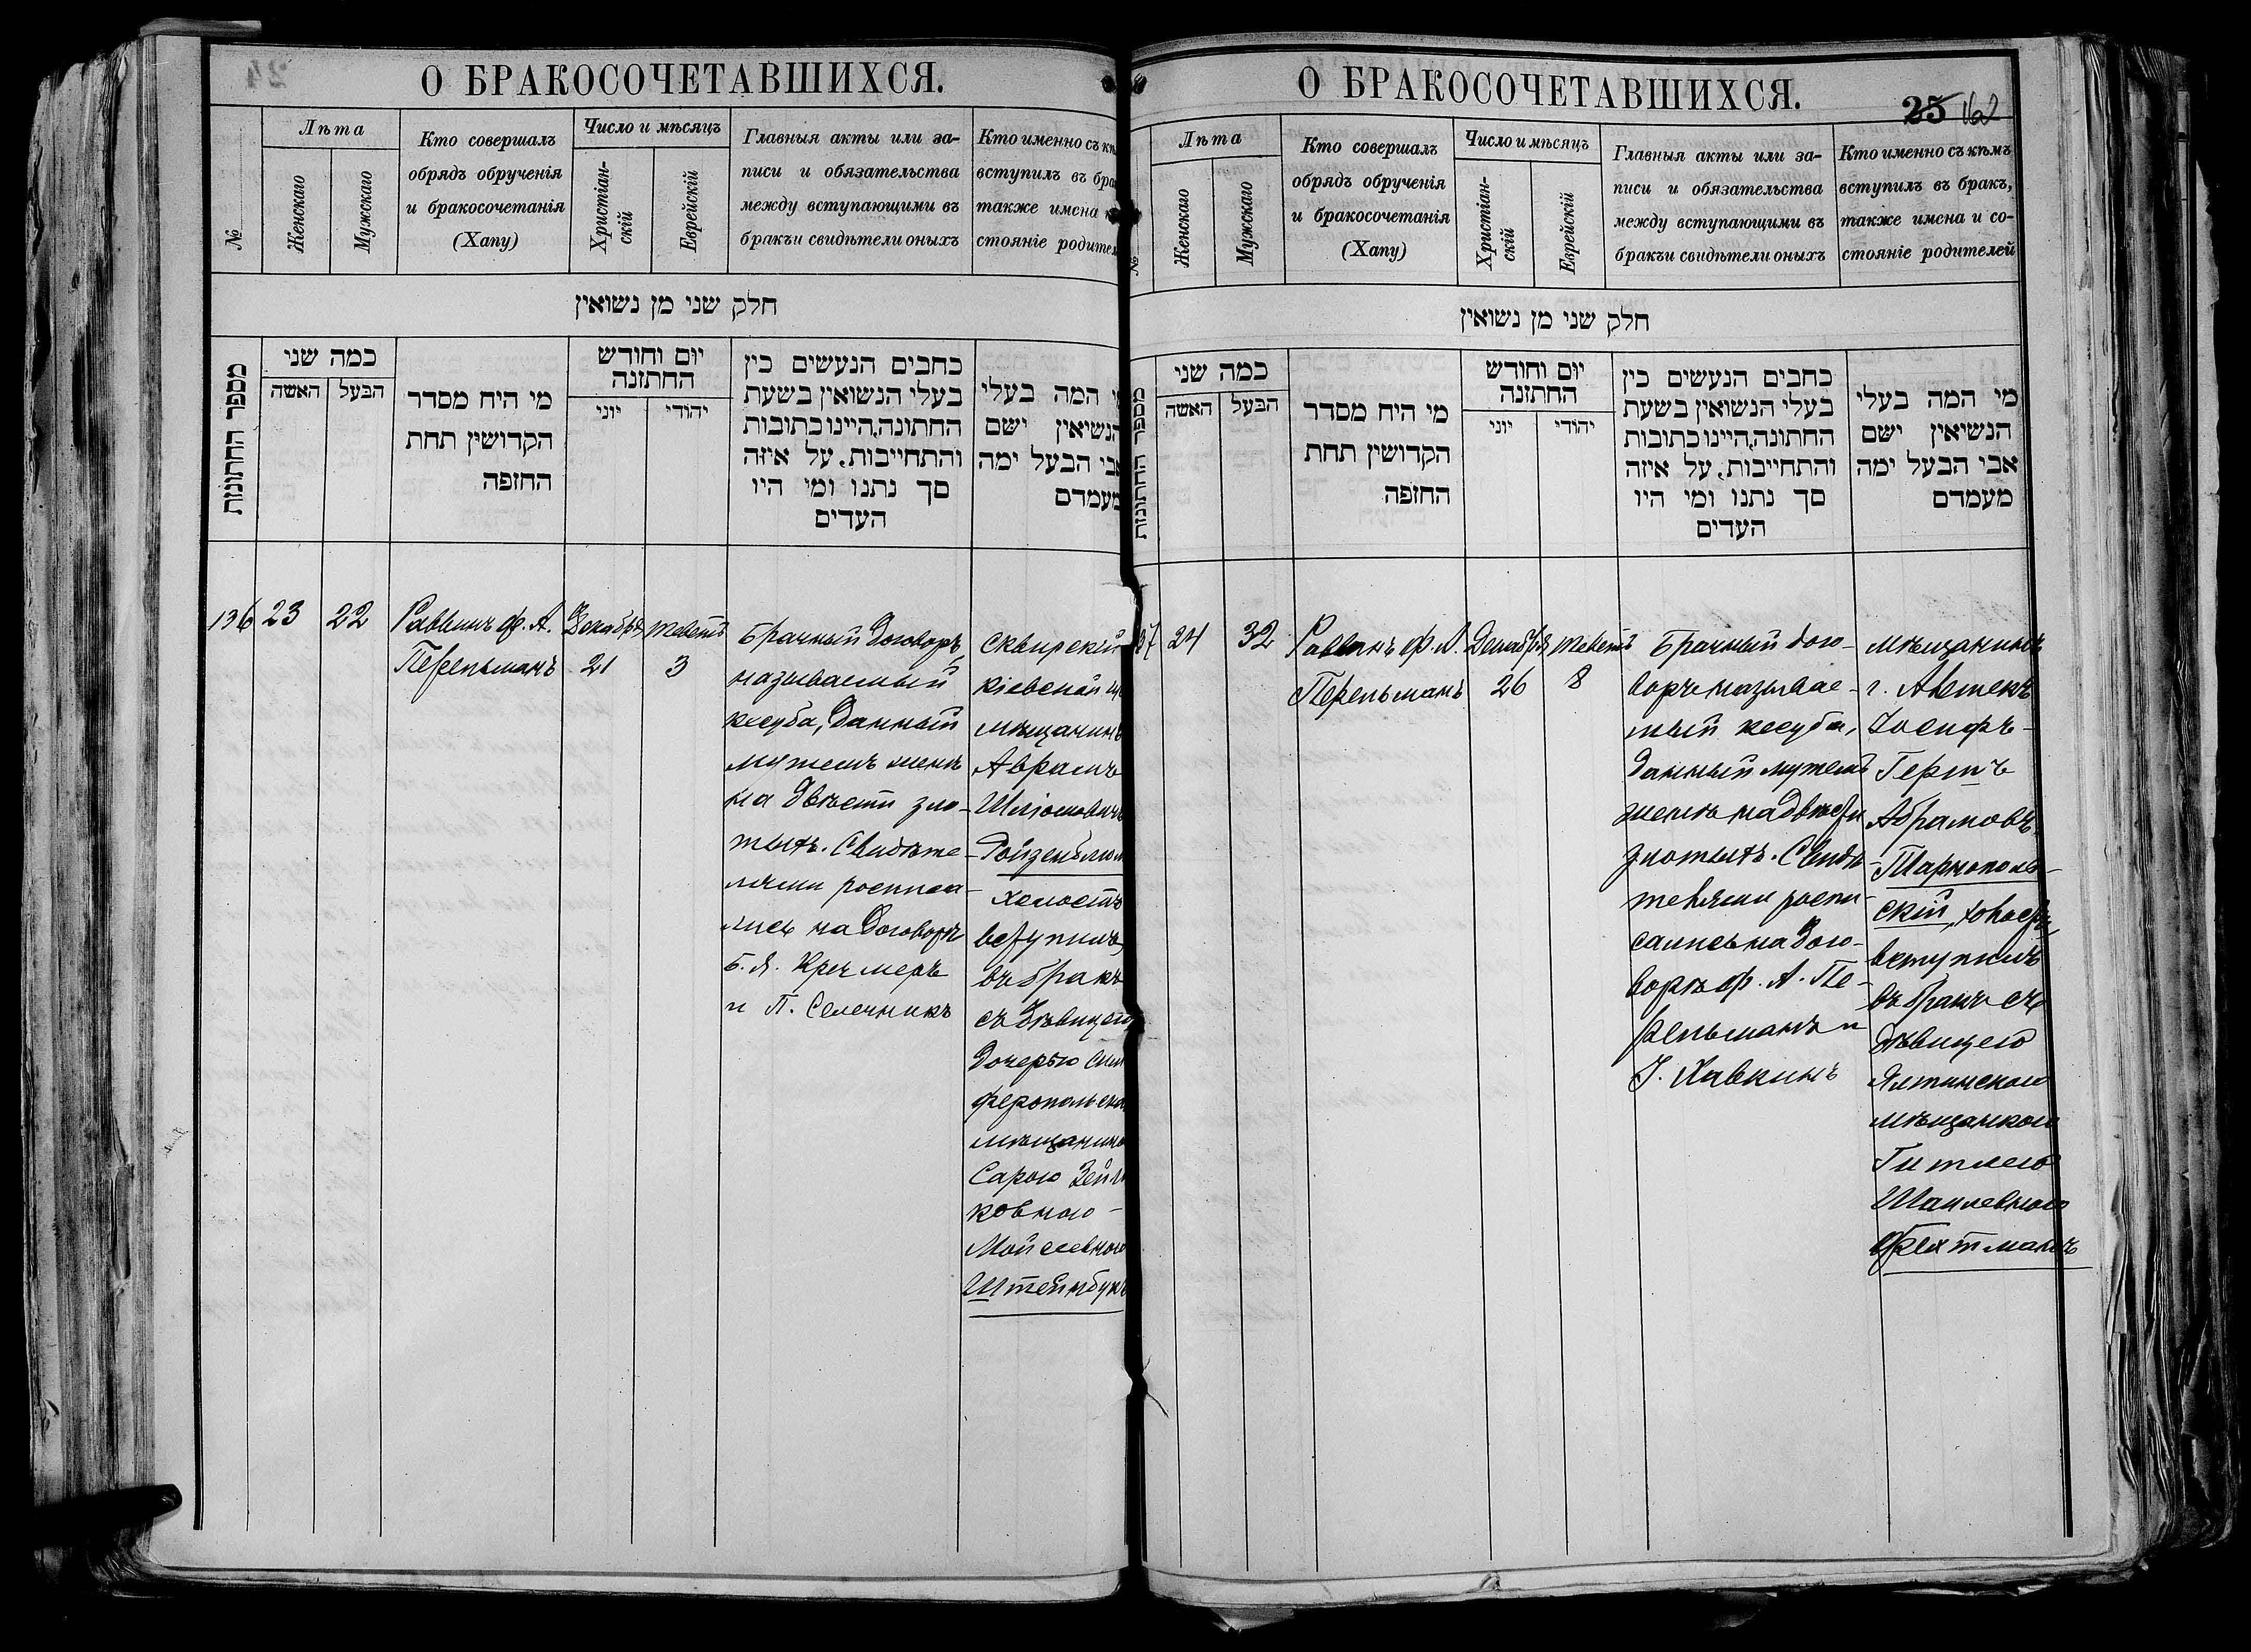 О БРАКОСОЧЕТАВШИХСЯ.
№
Лѣта
Женскаго
Мужскаго
Кто совершалъ
обрядъ обрученія
и бракосочетанія
(Хапу)
Число и мѣсяцъ
Христіан-
скій
Еврейскій
Главныя акты или за-
писи и обязательства
между вступающими въ
бракъи свидѣтели оныхъ
Кто именно съ
вступилъ въ бра
также имена
стояніе родител
חלק שני מן נשואין
מספר החתונות
כמה שני
האשה
הבעל
מי היח מסדר
הקדושין תחת
החופה
יום וחודש
החתונה
יוני
יהודי
כתבים הנעשים בין
בעלי הנשואין בשעת
החתונה,היינו כתובות
והתחייבות, על איזה
סך נתנו ומי היו
העדים
המה בעלי
הנשיאין ישם
אבי הבעל ימה
מעמדם
136
23
22
Раввинъ Ф. А.
Перельманъ
Декабря
21
Теветъ
3
Брачный договоръ,
называемый
кесуба, данный
мужемъ женѣ
на двѣсти зло-
тыхъ. Свидѣте-
лями росписа-
лись на договорѣ
Б. Я. Кремеръ
и П. Селечникъ
Сквирскій
Кіевской
мѣщанинъ
Аврамъ
Шліомовичъ
Ройзенблюм
холостъ
вступилъ
въ бракъ
съ дѣвицею
дочерью Сим
феропольска
мѣщанина
Сарою Зейли
ковною -
Мойсеевною
Штейнбукъ
О БРАКОСОЧЕТАВШИХСЯ.
25 162
№
Лѣта
Женскаго
Мужскаго
Кто совершалъ
обрядъ обрученія
и бракосочетанія
(Хапу)
Число и мѣсяцъ
Христіан-
скій
Еврейскій
Главныя акты или за-
писи и обязательства
между вступающими въ
бракъи свидѣтели оныхъ
Кто именно съ кѣмъ
вступилъ въ бракъ,
также имена и со-
стояніе родителей
חלק שני מן נשואין
מספר החתונות
כמה שני
האשה
הבעל
מי היח מסדר
הקדושין תחת
החופה
יום וחודש
החתונה
יוני
יהודי
כתבים הנעשים בין
בעלי הנשואין בשעת
החתונה,היינו כתובות
והתחייבות, על איזה
סך נתנו ומי היו
העדים
מי המה בעלי
הנשיאין ישם
אבי הבעל ימה
מעמדם
37
24
32
Раввинъ Ф. А.
Перельманъ
Декабря
26
Теветъ
8
Брачный дого-
воръ называе-
мый кесуба,
данный мужемъ
женѣ на двѣсти
злотыхъ. Свидѣ-
телями роспи-
сались на дого-
ворѣ Ф. А. Пе-
рельманъ и
Хавкинъ
мѣщанинъ
г. Алешекъ
Іосифъ-
Гершъ
Абрамовъ
Тарнополь-
скій, холостъ,
вступилъ
въ бракъ съ
дѣвицею
Ялтинскою
мѣщанкою
Гитлею
Шаилевною
Фехтманъ